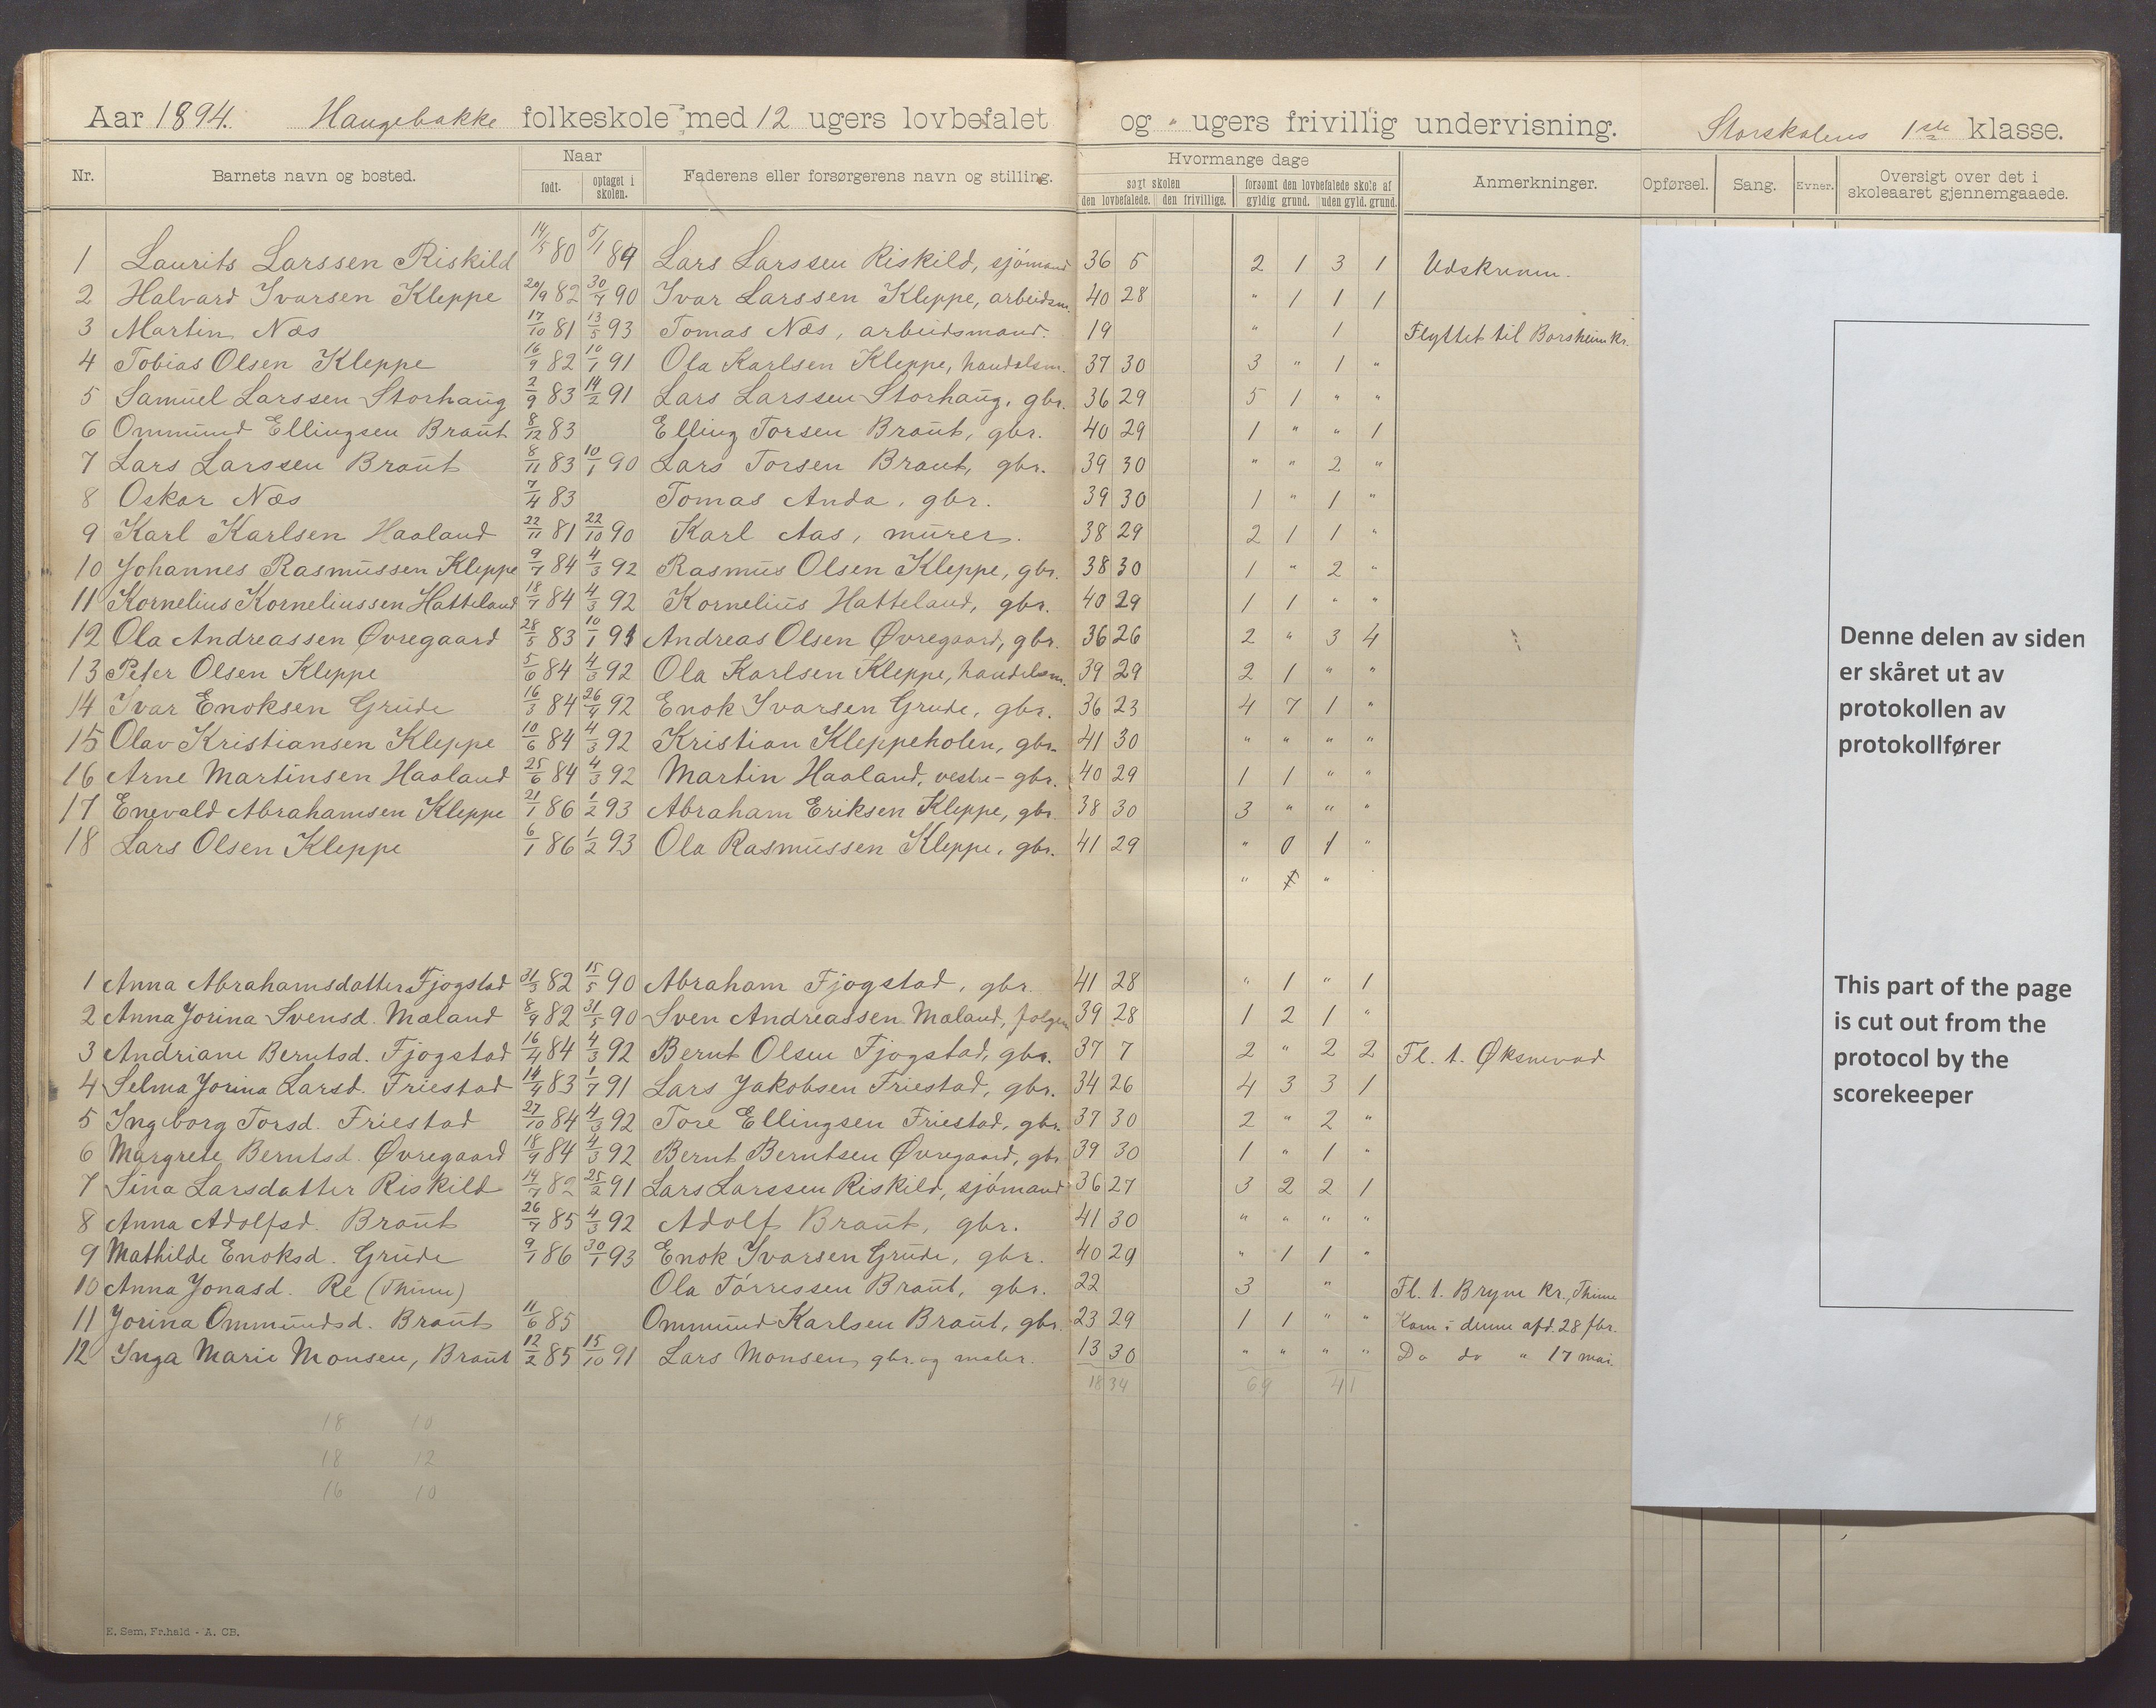 Aar 1894. Haugebakke folkeskole med 12 ugers lovbefalet og " ugers frivillig undervisning. Storskolens 1ste klasse.
Nr. Barnets navn og bosted. Naar født. optaget i skolen. Faderens eller forsørgerens navn og stilling. Hvormange dage søgt skolen den lovbefalede. den frivillige. forsømt den lovbefalede skole af gyldig grund. uden gyld. grund. Anmerkninger. Opførsel. Sang. Evner. Oversigt over det i skoleaaret gjennemgaaede.
1 Laurits Larssen Riskild 14/5 80 5/1 89 Lars Larssen Riskild, sjömand 36 5 2 1 3 1 Udskreven.
2 Halvard Ivarsen Kleppe 20/9 82 30/4 90 Ivar Larssen Kleppe, arbeidsm. 40 28 " 1 1 1
3 Martin Næs 17/10 81 13/5 93 Tomas Næs, arbeidsmand. 19 " 1 Flyttet til Borsheim kr.
4 Tobias Olsen Kleppe 16/9 82 10/1 91 Ola Karlsen Kleppe, handelsm. 37 30 3 " 1 "
5 Samuel Larssen Storhaug 2/9 83 14/2 91 Lars Larssen Storhaug, gbr. 36 29 5 1 " "
6 Ommund Ellingsen Braut 8/12 83 Elling Torsen Braut, gbr. 40 29 1 " " 1
7 Lars Larssen Braut 8/11 83 10/1 90 Lars Torsen Braut, gbr. 39 30 " " 2 "
8 Oskar Næs 7/4 83 Tomas Anda, gbr. 39 30 1 " 1 "
9 Karl Karlsen Haaland 22/11 81 22/10 90 Karl Aas, murer. 38 29 2 1 1 "
10 Johannes Rasmussen Kleppe 9/7 84 4/3 92 Rasmus Olsen Kleppe, gbr. 38 30 1 " 2 "
11 Kornelius Korneliussen Hatteland 18/7 84 4/3 92 Kornelius Hatteland, gbr. 40 29 1 1 " "
12 Ola Andreassen Øvregaard 28/5 83 10/1 91 Andreas Olsen Øvregaard, gbr. 36 26 2 " 3 4
13 Peter Olsen Kleppe 5/6 84 4/3 92 Ola Karlsen Kleppe, handelsm. 39 29 2 1 " "
14 Ivar Enoksen Grude 16/3 84 26/4 92 Enok Ivarsen Grude, gbr. 36 23 4 7 1 "
15 Olav Kristiansen Kleppe 10/6 84 4/3 92 Kristian Kleppeholen, gbr. 41 30 " " " "
16 Arne Martinsen Haaland 25/6 84 4/3 92 Martin Haaland, vestre- gbr. 40 29 1 1 " "
17 Enevald Abrahamsen Kleppe 21/1 86 1/2 93 Abraham Eriksen Kleppe, gbr. 38 30 3 " " "
18 Lars Olsen Kleppe 6/1 86 1/2 93 Ola Rasmussen Kleppe, gbr. 41 29 " 0 1 "
" "
1 Anna Abrahamsdatter Fjogstad 31/3 82 15/5 90 Abraham Fjogstad, gbr. 41 28 " 1 " 1
2 Anna Jorina Svensd. Mæland 8/9 82 31/5 90 Sven Andreassen Mæland, 39 28 1 2 1 "
3 Andriane Berntsd. Fjogstad 16/4 84 4/3 92 Bernt Olsen Fjogstad, gbr. 37 7 2 " 2 2 Fl. t. Øksnevad
4 Selma Jorina Larsd. Friestad 14/4 83 1/7 91 Lars Jakobsen Friestad, gbr. 34 26 4 3 3 1
5 Ingeborg Torsd. Friestad 27/10 84 4/3 92 Tore Ellingsen Friestad, gbr. 37 30 2 " 2 "
6 Margrete Berntsd. Øvregaard 18/9 84 4/3 92 Bernt Berntsen Øvregaard, gbr 39 30 1 " 1 "
7 Sina Larsdatter Riskild 14/7 82 25/2 91 Lars Larssen Riskild, sjömand 36 27 3 2 2 1
8 Anna Adolfsd. Braut 26/7 85 4/3 92 Adolf Braut, gbr. 41 30 " " " "
9 Mathilde Enoksd. Grude 9/1 86 30/1 93 Enok Ivarsen Grude, gbr. 40 29 " 1 1 "
10 Anna Jonasd. Re (Thime) Ola Törressen Braut, gbr. 22 3 " Fl. t. Bryne kr., Thime
11 Jorina Ommundsd. Braut 11/6 85 Ommund Karlsen Braut, gbr. 23 29 1 1 " " Kom i denne afd. 28 fbr.
12 Inga Marie Monsen, Braut 12/2 85 15/10 91 Lars Monsen, gbr. og maler. 13 30 " " " " Do do " 17 mai.
18 34 69 41
18 10
18 12
16 10
E. Sem, Fr.hald - A. CB.
Denne delen av siden
er skåret ut av
protokollen av
protokollfører
This part of the page
is cut out from the
protocol by the
scorekeeper